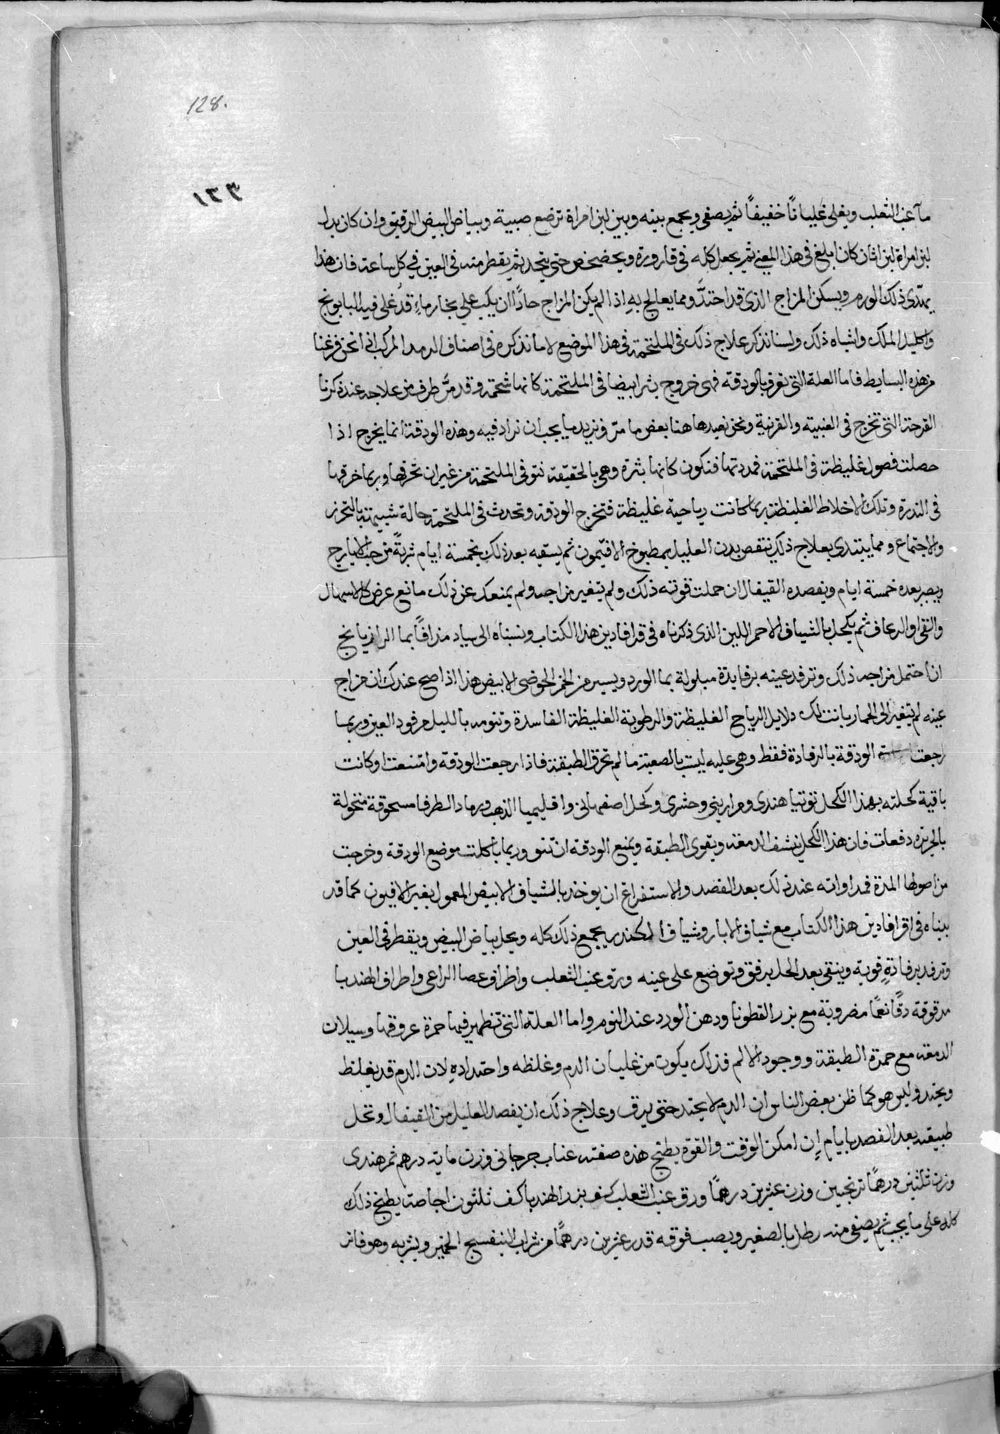 128.
١٣٣
مآ عنب الثعلب ويغلى غليانًا خفيفًا ثم يصفى ويجمع بينه وبين لبن امراة ترضع صبية وبياض البيض الرقيق وان كان بدل
لبن امراة لبن اتان كان ابلغ فى هذا المعنى ثم يجعل كله فى قارورة ويخضخض حتى يتحد ثم يقطر منه فى العين فى كل ساعة فان هذا
يهدى ذلك الورم ويسكن المزاج الذى قد احتدّ ومما يعالج به اذا لم يكن المزاج حادًا ان يكب على بخار ماءٍ قد غلى فيه البابونج
واكليل الملك واشباه ذلك ولسنا نذكر علاج ذلك فى الملتحمة فى هذا الموضع لاما نذكره فى اصناف الرمد المركب اذا نحن فرغنا
من هذه البسايط فاما العلة التى تعرف بالودقة فهى خروج بثر ابيضا فى الملتحمة كانها شحمة وقد مرّ طرف من علاجه عند ذكرنا
القرحة التى تخرج فى العنبية والقرنية ونحن نعيدها هنا بعض ما مرّ ونزيد ما يجب ان نزاد فيه وهذه الودقة انما يخرج اذا
حصلت فصول غليظة فى الملتحمة فمددتها فتكون كانها بثرة وهى بالحقيقة نتو فى الملتحمة من غير ان تخرقها وربما خرقها
فى الندرة وتلك الاخلاط الغليظة ربما كانت رياحية غليظة فتخرج الودقة وتحدث فى الملتحمة حالة شبيهة بالتحزز
والاجتماع ومما يبتدى بعلاج ذلك تنقص بدن العليل بمطبوخ الافتيمون ثم يسقيه بعد ذلك بخمسة ايام شربةً من حب الايارج
ويصبر بعده خمسة ايام ويفصده القيفال ان حملت قوته ذلك ولم يتغير مزاجه ولم يمنعك عن ذلك مانع عرض كالاسهال
والقى او الرعاف ثم يكحل بالشياف الاحمر اللين الذى ذكرناه فى قرافادين هذا الكتاب ونسبناه الى بياد مذافاً بما الرازيانج
ان احتمل مزاجه ذلك وترفد عينه برفايدة مبلولة بما الورد ويسير من الخمر الحوضى الابيض هذا اذا صح عندك ان مزاج
عينه لم يتغير الى الحمار بانت لك دلايل الرياح الغليظة والرطوبة الغليظة الفاسدة وتنومه بالليل مرفود العين وربما
رجعت الودقة بالرفادة فقط وهى عليه ليست بالصعبة ما لم تخرق الطبقة فاذا رجعت الودقة وامتنعت او كانت
باقية كحلته بهذا الكحل توتيا هندى ومرازينى وحشرى وكحل اصفهانى واقليميا الذهب ورماد الطرفا مسحوقة منخولة
بالحريرة دفعات فان هذا الكحل ينشف الدمعة ويقوى الطبقة ويمنع الودقة ان تنتو وربما تاكلت موضع الودقة وخرجت
من اصولها المدة فمداواته عند ذلك بعد الفصد والاستفراغ ان يوخذ بالشياف الابيض المعمول بغير الافيون كما قد
بيناه فى اقرافادين هذا الكتاب مع شياف الابار وشياف الكندر يجمع ذلك كله ويحل ببياض البيض ويقطر فى العين
وترفد برفادةٍ قوية وينقى بعد الحل برفق وتوضع على عينه ورق عنب الثعلب واطراف عصا الراعى واطراف الهندبا
مدقوقة دقًا نعمًا مضروبة مع بزر القطونا ودهن الورد عند النوم واما العلة التى تظهر فيها حمرة عروقها وسيلان
الدمعة مع حمرة الطبقة ووجود الالم فذلك يكون من غليان الدم وغلظه واحتداده لان الدم قد يغلظ
ويحتد وليس هو كما ظن بعض الناس ان الدم لا يحتد حتى يرق وعلاج ذلك ان يفصد العليل من القيفال وتحل
طبيعته بعد الفصد بايام إن امكن الوقت والقوة بطبخ هذه صفته عناب جرجانى وزن ماية درهم تمر هندى
وزن ثلثين درهمًا ترنجبين وزن عشرين درهمًا ورق عنب الثعلب كف بزر الهندبا كف ثلثون اجاصة يطبخ ذلك
كله على ما يجب ثم يصفى منه رطل بالصغير ويصب فوقه قدر عشرين درهمًا من شراب البنفسج الخمير ويشربه وهو فاتر